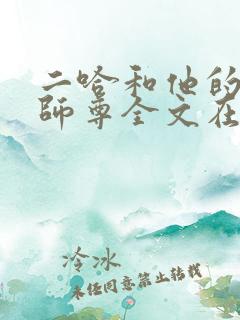 二哈和他的
師尊全文在
冷冰
未经同意禁止转载